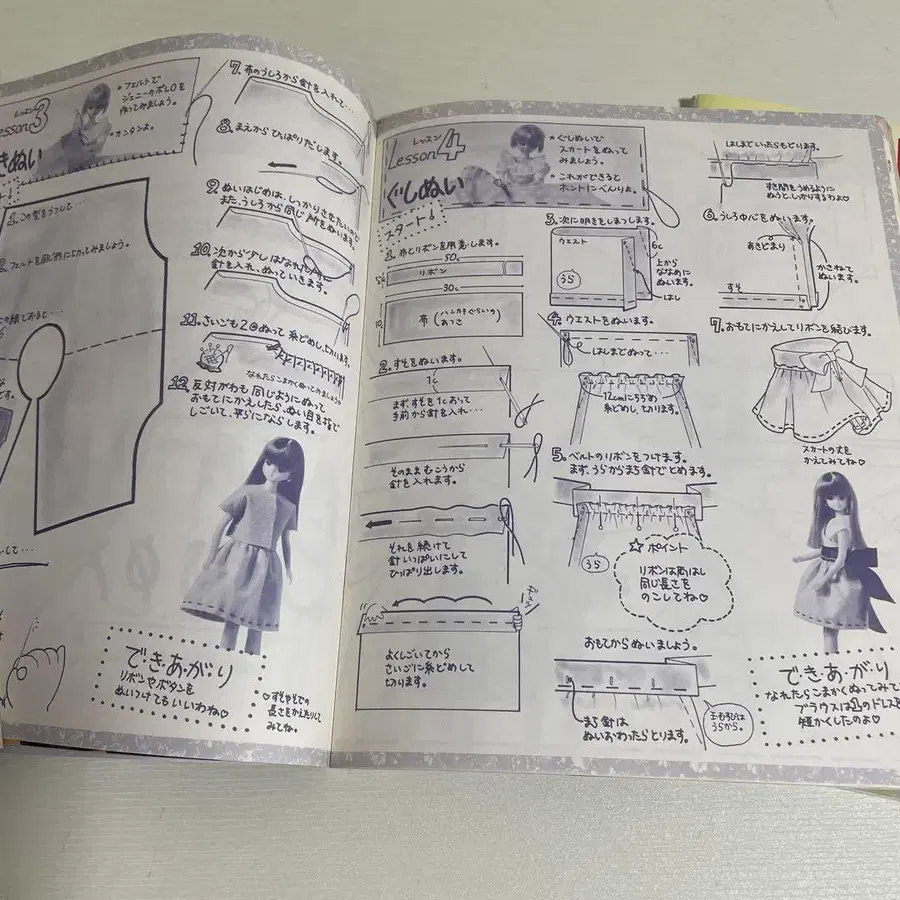 レッスン
Lesson3
きぬい
★フェルトで
ジェニーのボレロを
作ってみましょう。
★カンタンよ。
1. この型をうつして…
2. フェルトを同じ形に切ってみましょう。
7. 布のうしろから針を入れて…
8. まえからひっぱりだします。
9. ぬいはじめは、しっかりさせたいので
また、うしろから同じ所をぬいます。
10. 次から少しはなれた所に
針を入れ、ぬっていきます。
11. さいごも2回ぬって糸どめし、切ります。
なれたらこまかくぬってみましょう
12. 反対がわも同じようにぬって
おもてにかえしたら、ぬい目を指で
しごいて、平らにならします。
で・き・あ・が・り
リボンやボタンを
ぬいつけてもいいわね♡
♡すそやそでの
長さをかえたりして
みてね。
レッスン
Lesson4
ぐしぬい
★ぐしぬいで
スカートをぬって
みましょう。
★これができると
ホントにべんりよ。
スタート!
1. 布とリボンを用意します。
50c
リボン
30c
布(ハンカチぐらいのあつさ)
2. すそをぬいます。
1c
まず、すそを1cおって
手前から針を入れ…
そのままむこうから
針を入れます。
それを続けて
針いっぱいにして
ひっぱり出します。
よくしごいてから
さいごに糸どめして
切ります。
3. 次に明きをしまつします。
ウエスト
うら
6c
上から
ななめに
ぬいます。
はし
4. ウエストをぬいます。
はしまでぬって…
12cmにちぢめ
糸どめし、切ります。
5. ベルトのリボンをつけます。
まず、うらからまち針でとめます。
うら
☆ポイント
リボンは両はし
同じ長さを
のこしてね♡
おもてからぬいましょう。
まち針は
ぬいおわったらとります。
玉むすびは
うらから。
はしまでいったらもどります。
すき間をうめるように
ぬうと、しっかりするわよ♡
6. うしろ中心をぬいます。
あきどまり
かさねて
ぬいます。
すそ
7. おもてにかえしてリボンを結びます。
スカートの丈を
かえてみてね♡
で・き・あ・が・り
なれたらこまかくぬってみて
ブラウスは1のドレスを
短かくしたのよ♡